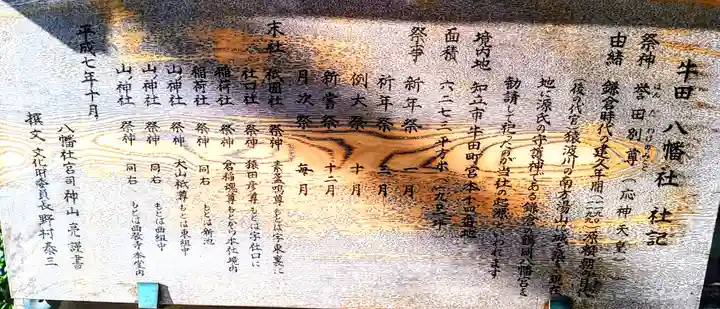 牛田 八幡社 社記
祭神 誉田別尊 応神天皇
ほんだわけのみこと
由緒 鎌倉時代の建久年間(一一九〇 源頼朝
地に源氏の守護神である鎌倉鶴岡八幡宮を
勧請して祀ったのが当社の起源といわれます
境内地 知立市牛田町宮本 番地
面積 六二七二平方米
祭事 新年祭 一月
祈年祭 三月
例大祭 十月
新嘗祭 十二月
月次祭 毎月
末社 祇園社 祭神 素盞鳴尊 もとは字東裏に
社口社 祭神 猿田彦尊 もとは字社口に
稲荷社 祭神 倉稲魂尊 もとから本社境内
稲荷社 祭神 同右 もとは新池
山ノ神社 祭神 大山祇尊 もとは東組中
山ノ神社 祭神 同右 もとは西組中
山ノ神社 祭神 同右 もとは西教寺本堂南
平成七年十月
八幡社宮司 神山 亮 謹書
撰文 文化財委員長 野村泰三